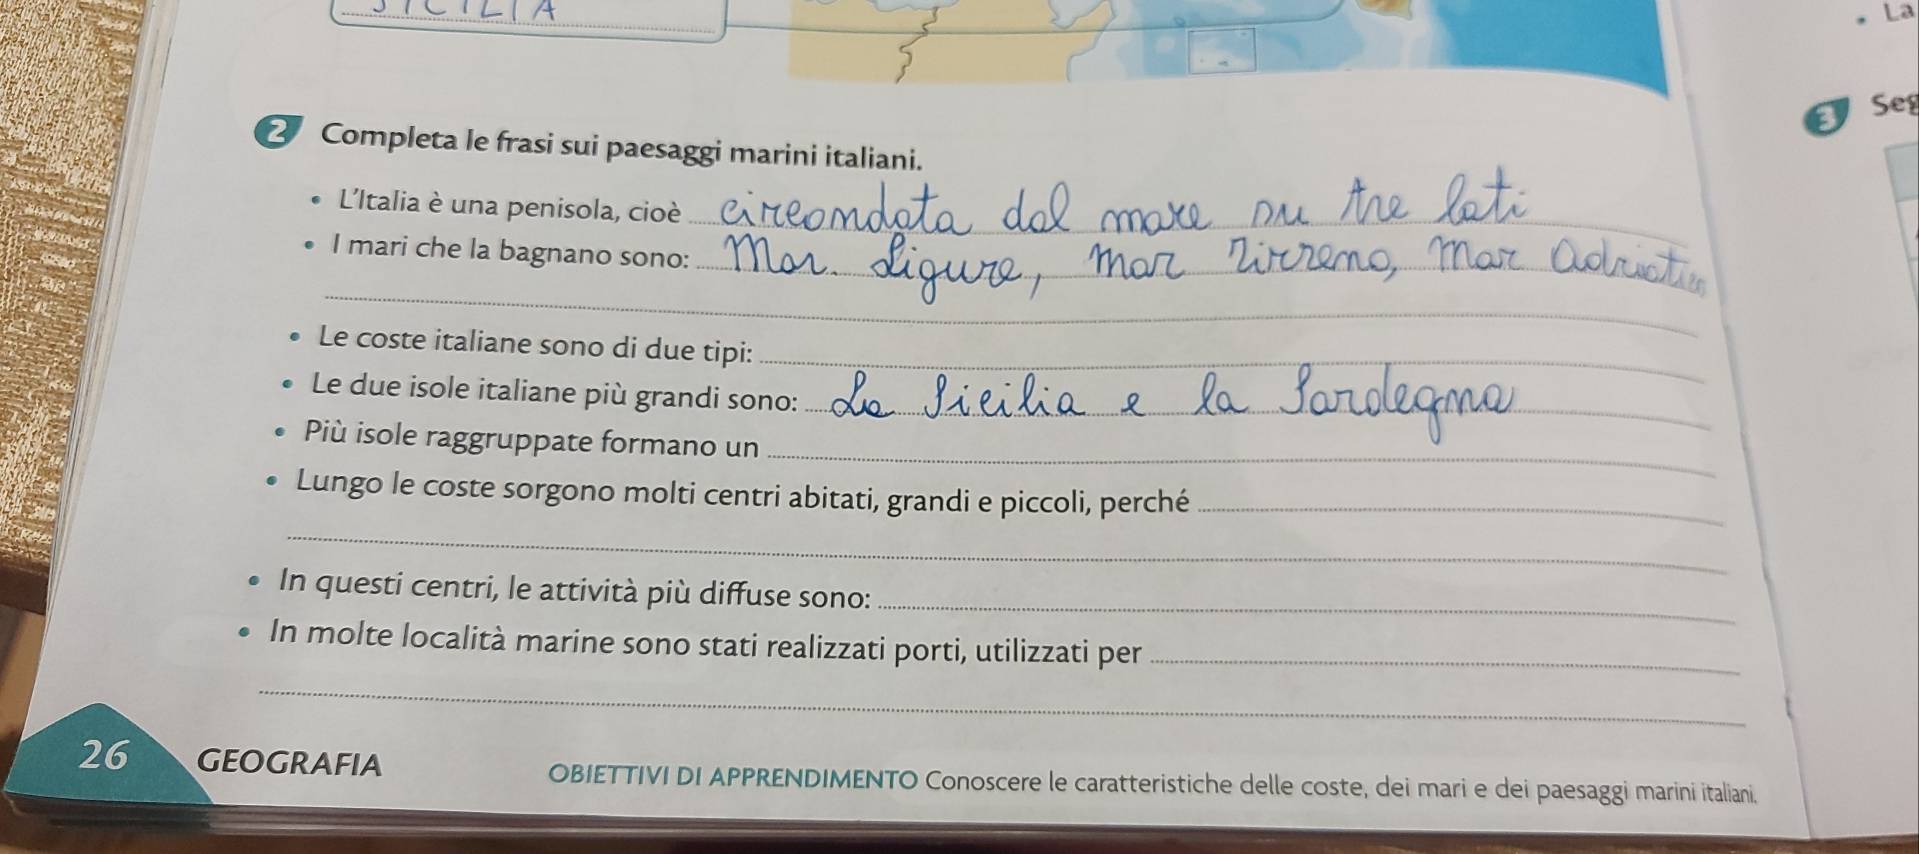 SICILIA
La
3 Seg
2 Completa le frasi sui paesaggi marini italiani.
• L'Italia è una penisola, cioè circondata dal mare su tre lati
• I mari che la bagnano sono: Mar. Ligure, mar Tirreno, mar adriatico
• Le coste italiane sono di due tipi:
• Le due isole italiane più grandi sono: La Sicilia e la Sardegna
• Più isole raggruppate formano un
• Lungo le coste sorgono molti centri abitati, grandi e piccoli, perché
• In questi centri, le attività più diffuse sono:
• In molte località marine sono stati realizzati porti, utilizzati per
26 GEOGRAFIA
OBIETTIVI DI APPRENDIMENTO Conoscere le caratteristiche delle coste, dei mari e dei paesaggi marini italiani.